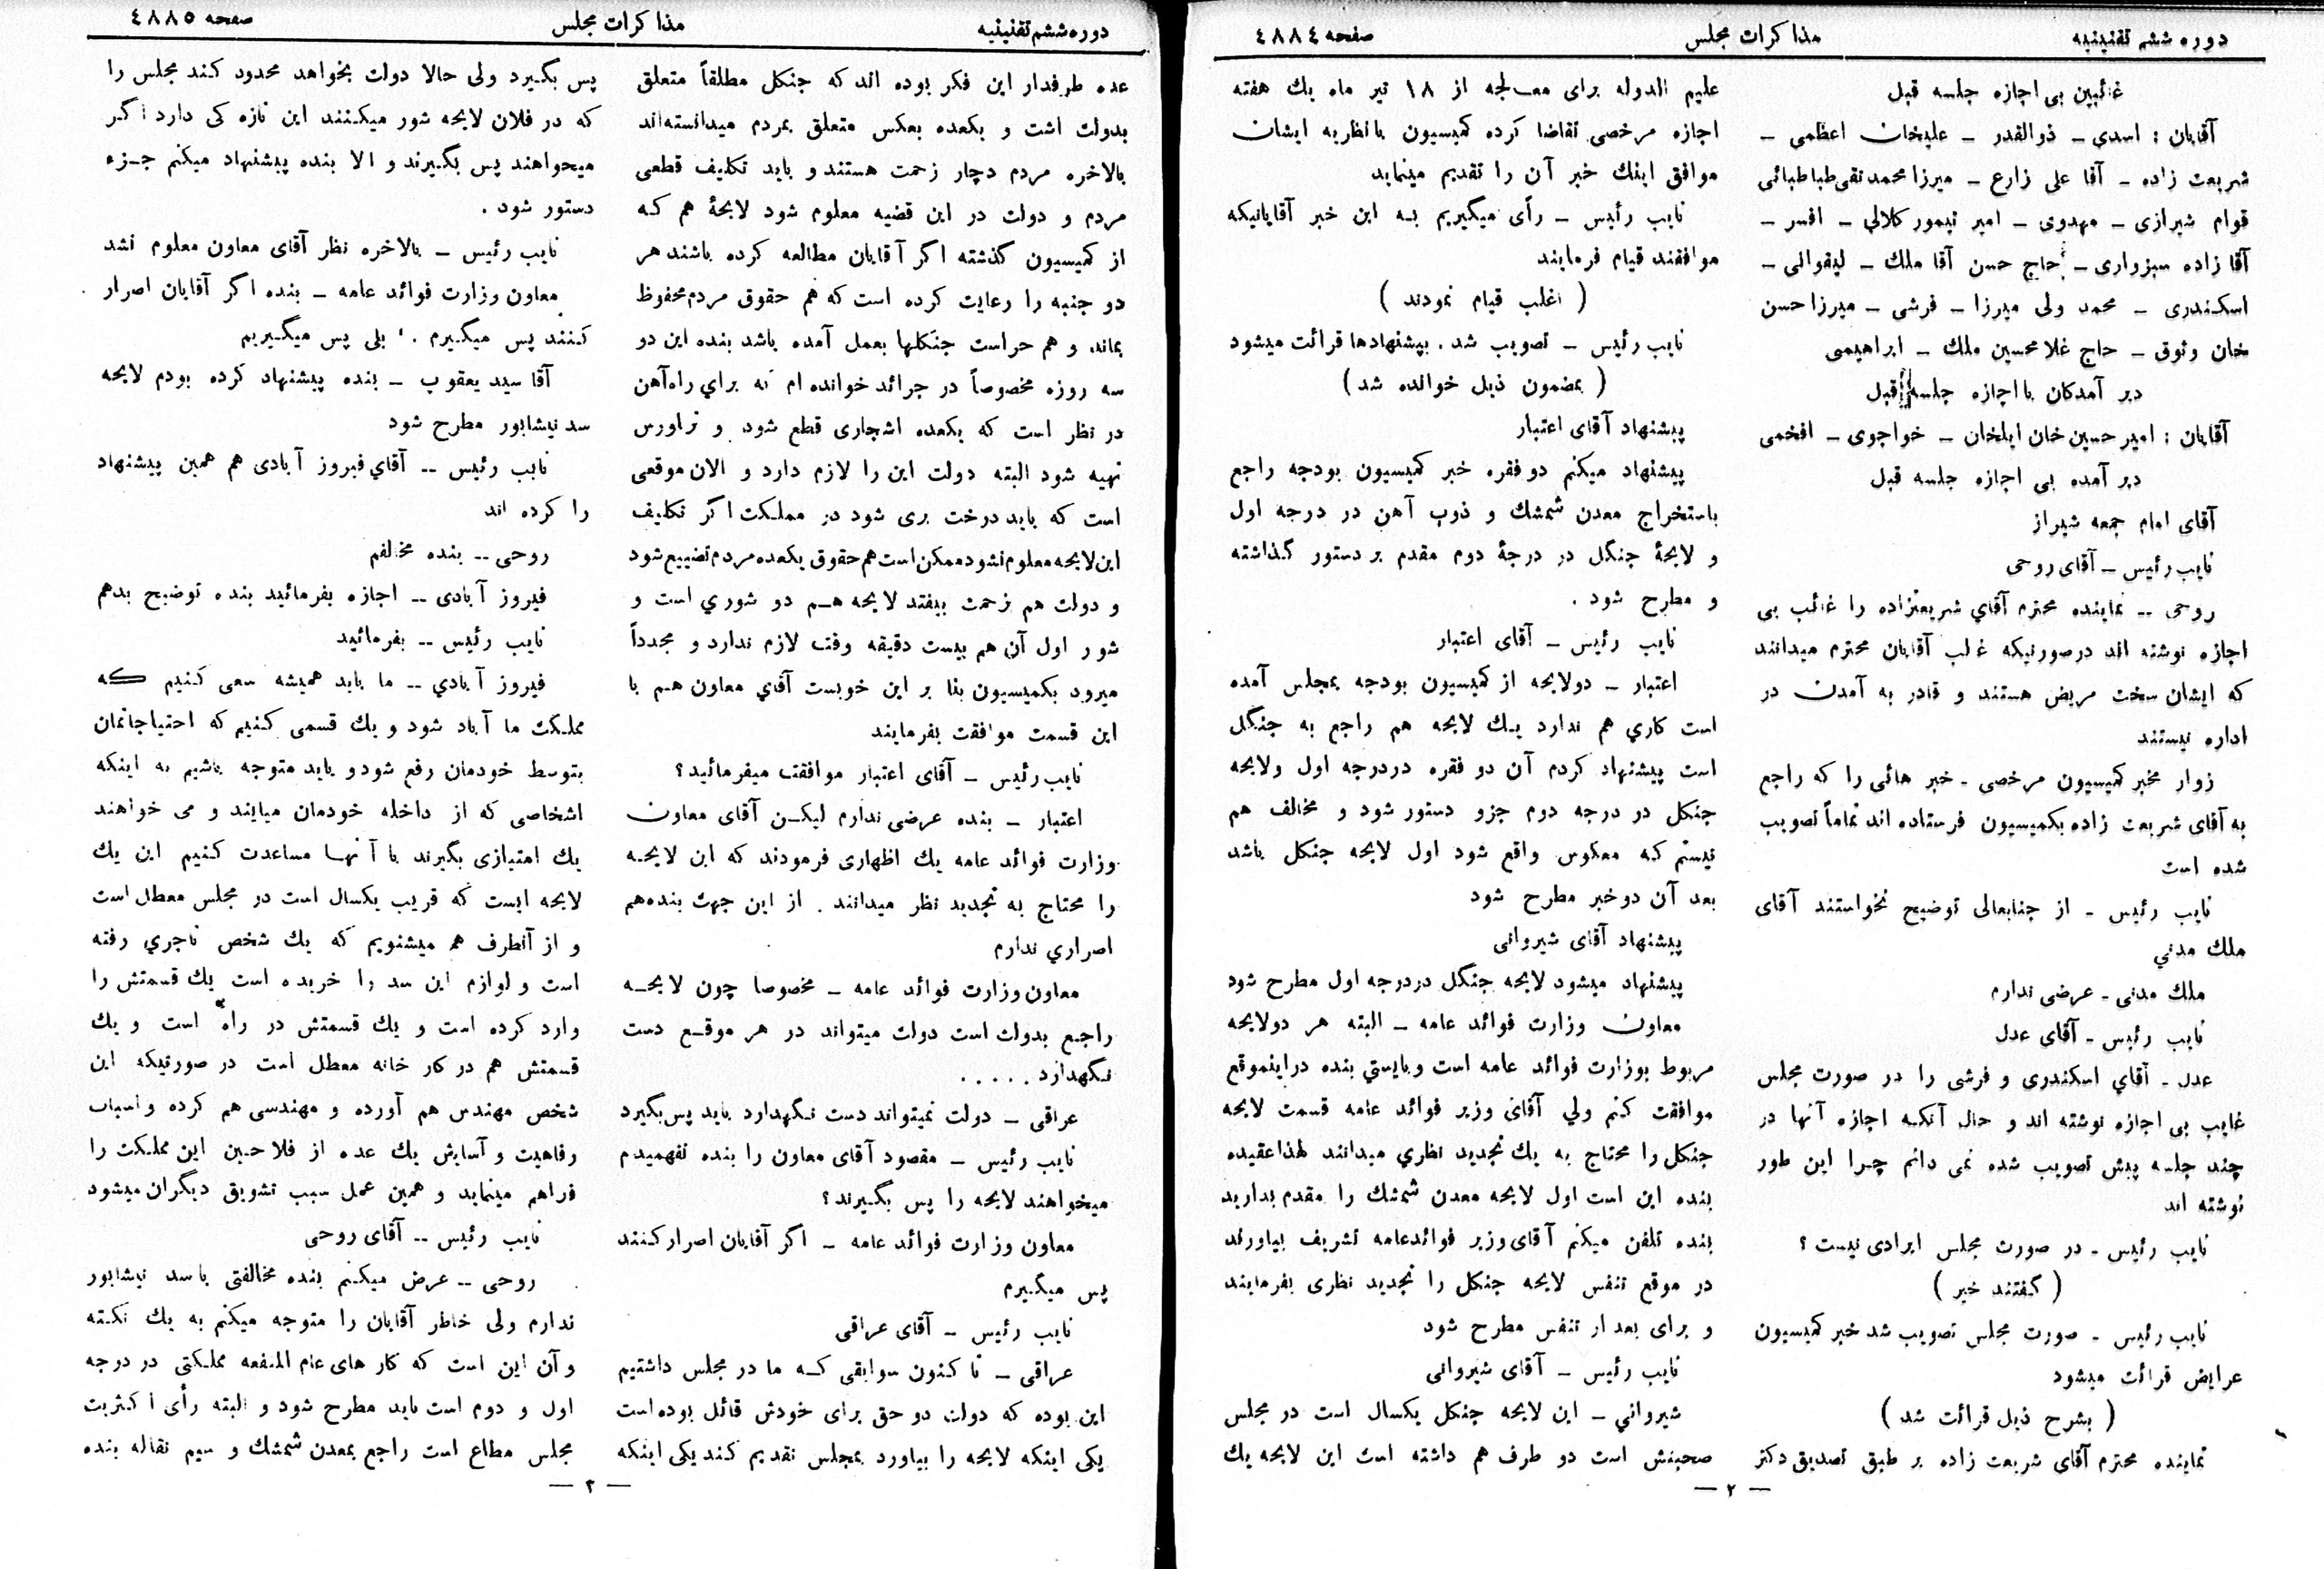 دوره ششم تقنینیه
مذاکرات مجلس
صفحه ٤٨٨٤
غائبین بی اجازه جلسه قبل
آقایان : اسدی ـ ذوالقدر ـ علیخان اعظمی ـ
شریعت زاده ـ آقا علی زارع ـ میرزا محمد تقی طباطبائی
قوام شیرازی ـ مهدوی ـ امیر تیمور کلالی ـ افسر ـ
آقا زاده سبزواری ـ حاج حسن آقا ملك ـ لیقوانی ـ
اسکندری ـ محمد ولی میرزا ـ فرشی ـ میرزا حسن
خان وثوق ـ حاج غلامحسین ملك ـ ابراهیمی
دیر آمدکان با اجازه جلسه قبل
آقایان : امیر حسین خان ایلخان ـ خواجوی ـ افخمی
دیر آمده بی اجازه جلسه قبل
آقای امام جمعه شیراز
نایب رئیس ـ آقای روحی
روحی ـ نماینده محترم آقاي شریعتزاده را غائب بی
اجازه نوشته اند درصورتیکه غلب آقایان محترم میدانند
که ایشان سخت مریض هستند و قادر به آمدن در
اداره نیستند
زوار مخبر کمیسیون مرخصی ـ خبر هائی را که راجع
به آقای شریعت زاده بکمیسیون فرستاده اند تماماً تصویب
شده است
نایب رئیس ـ از جنابعالی توضیح نخواستند آقای
ملك مدني
ملك مدنی ـ عرضی ندارم
نایب رئیس ـ آقای عدل
عدل ـ آقاي اسکندری و فرشی را در صورت مجلس
غایب بی اجازه نوشته اند و حال آنکه اجازه آنها در
چند جلسه پیش تصویب شده نمی دانم چرا این طور
نوشته اند
نایب رئیس ـ در صورت مجلس ایرادی نیست ؟
( گفتند خیر )
نایب رئیس ـ صورت مجلس تصویب شد خبر کمیسیون
عرایض قرائت میشود
( بشرح ذیل قرائت شد )
نماینده محترم آقای شریعت زاده بر طبق تصدیق دکتر
علیم الدوله برای معالجه از ١٨ تیر ماه یك هفته
اجازه مرخصی تقاضا کرده کمیسیون با نظریه ایشان
موافق اینك خبر آن را تقدیم مینماید
نایب رئیس ـ رأی میگیریم به این خبر آقایانیکه
موافقند قیام فرمایند
( اغلب قیام نمودند )
نایب رئیس ـ تصویب شد . پیشنهادها قرائت میشود
( بمضمون ذیل خوانده شد )
پیشنهاد آقای اعتبار
پیشنهاد میکنم دو فقره خبر کمیسیون بودجه راجع
باستخراج معدن شمشك و ذوب آهن در درجه اول
و لایحهٔ جنگل در درجهٔ دوم مقدم بر دستور گذاشته
و مطرح شود .
نایب رئیس ـ آقای اعتبار
اعتبار ـ دولایحه از کمیسیون بودجه بمجلس آمده
است کاري هم ندارد یك لایحه هم راجع به جنگل
است پیشنهاد کردم آن دو فقره دردرجه اول ولایحه
جنگل در درجه دوم جزو دستور شود و مخالف هم
نیستم که معکوس واقع شود اول لایحه جنگل باشد
بعد آن دو خبر مطرح شود
پیشنهاد آقای شیروانی
پیشنهاد میشود لایحه جنگل دردرجه اول مطرح شود
معاون وزارت فوائد عامه ـ البته هر دولایحه
مربوط بوزارت فوائد عامه است و بایستي بنده دراینموقع
موافقت کنم ولي آقای وزیر فوائد عامه قسمت لایحه
جنگل را محتاج به یك تجدید نظري میدانند لهذا عقیده
بنده این است اول لایحه معدن شمشك را مقدم بدارید
بنده تلفن میکنم آقای وزیر فوائدعامه تشریف بیاورند
در موقع تنفس لایحه جنگل را تجدید نظری بفرمایند
و برای بعد از تنفس مطرح شود
نایب رئیس ـ آقای شیروانی
شیرواني ـ این لایحه جنگل یکسال است در مجلس
صحبتش است دو طرف هم داشته است این لایحه یك
— ٢ —
دوره ششم تقنینیه
مذاکرات مجلس
صفحه ٤٨٨٥
عده طرفدار این فکر بوده اند که جنگل مطلقاً متعلق
بدولت است و یکعده بعکس متعلق بمردم میدانسته‌اند
بالاخره مردم دچار زحمت هستند و باید تکلیف قطعی
مردم و دولت در این قضیه معلوم شود لایحهٔ هم که
از کمیسیون گذشته اگر آقایان مطالعه کرده باشند هر
دو جنبه را رعایت کرده است که هم حقوق مردم محفوظ
بماند و هم حراست جنگلها بعمل آمده باشد بنده این دو
سه روزه مخصوصاً در جرائد خوانده ام که براي راه‌آهن
در نظر است که یکعده اشجاری قطع شود و تراورس
تهیه شود البته دولت این را لازم دارد و الان موقعی
است که باید درخت بری شود در مملکت اگر تکلیف
این لایحه معلوم نشود ممکن است هم حقوق یکعده مردم تضییع شود
و دولت هم زحمت بیفتد لایحه هم دو شوري است و
شور اول آن هم بیست دقیقه وقت لازم ندارد و مجدداً
میرود بکمیسیون بنا بر این خوبست آقاي معاون هم با
این قسمت موافقت بفرمایند
نایب رئیس ـ آقای اعتبار موافقت میفرمائید؟
اعتبار ـ بنده عرضی ندارم لیکن آقای معاون
وزارت فوائد عامه یك اظهاری فرمودند که این لایحه
را محتاج به تجدید نظر میدانند . از این جهت بنده هم
اصراري ندارم
معاون وزارت فوائد عامه ـ مخصوصا چون لایحه
راجع بدولت است دولت میتواند در هر موقع دست
نگهدارد . . . . .
عراقی ـ دولت نمیتواند دست نگهدارد باید پس بگیرد
نایب رئیس ـ مقصود آقای معاون را بنده نفهمیدم
میخواهند لایحه را پس بگیرند؟
معاون وزارت فوائد عامه ـ اگر آقایان اصرار کنند
پس میگیرم
نایب رئیس ـ آقای عراقی
عراقی ـ تا کنون سوابقی که ما در مجلس داشتیم
این بوده که دولت دو حق برای خودش قائل بوده است
یکی اینکه لایحه را بیاورد بمجلس تقدیم کند یکی اینکه
پس بگیرد ولی حالا دولت بخواهد محدود کند مجلس را
که در فلان لایحه شور میکنند این تازه کی دارد اگر
میخواهند پس بگیرند و الا بنده پیشنهاد میکنم جزء
دستور شود .
نایب رئیس ـ بالاخره نظر آقای معاون معلوم نشد
معاون وزارت فوائد عامه ـ بنده اگر آقایان اصرار
کنند پس میگیرم . بلی پس میگیریم
آقا سید یعقوب ـ بنده پیشنهاد کرده بودم لایحه
سد نیشابور مطرح شود
نایب رئیس ـ آقاي فیروز آبادی هم همین پیشنهاد
را کرده اند
روحی ـ بنده مخالفم
فیروز آبادی ـ اجازه بفرمائید بنده توضیح بدهم
نایب رئیس ـ بفرمائید
فیروز آبادي ـ ما باید همیشه سعی کنیم که
مملکت ما آباد شود و یك قسمی کنیم که احتیاجاتمان
بتوسط خودمان رفع شود و باید متوجه باشیم به اینکه
اشخاصی که از داخله خودمان میایند و می خواهند
یك امتیازی بگیرند با آنها مساعدت کنیم این یك
لایحه ایست که قریب یکسال است در مجلس معطل است
و از آنطرف هم میشنویم که یك شخص تاجري رفته
است و لوازم این سد را خریده است یك قسمتش را
وارد کرده است و یك قسمتش در راه است و یك
قسمتش هم در کار خانه معطل است در صورتیکه این
شخص مهندس هم آورده و مهندسی هم کرده و اسباب
رفاهیت و آسایش یك عده از فلاحین این مملکت را
فراهم مینماید و همین عمل سبب تشویق دیگران میشود
نایب رئیس ـ آقای روحی
روحی ـ عرض میکنم بنده مخالفتی با سد نیشابور
ندارم ولی خاطر آقایان را متوجه میکنم به یك نکته
و آن این است که کار های عام المنفعه مملکتی در درجه
اول و دوم است باید مطرح شود و البته رأی اکثریت
مجلس مطاع است راجع بمعدن شمشك و سیم نقاله بنده
— ٣ —